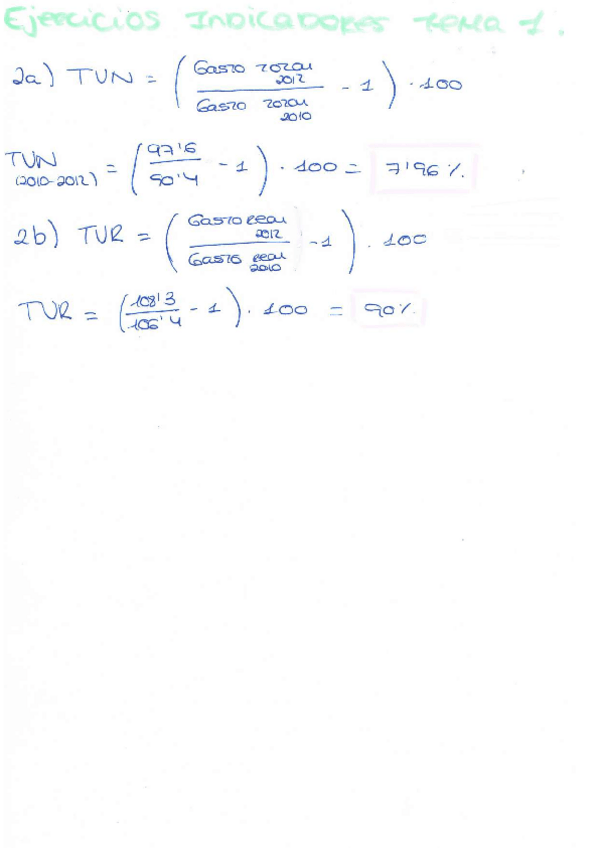 Ejercicios Indicadores Tema 1.
2a) TVN = (Gasto total 2012 / Gasto total 2010 - 1) · 100
TVN (2010-2012) = (97'6 / 90'4 - 1) · 100 = 7'96 %.
2b) TVR = (Gasto real 2012 / Gasto real 2010 - 1) · 100
TVR = (108'3 / 106'4 - 1) · 100 = 90%.